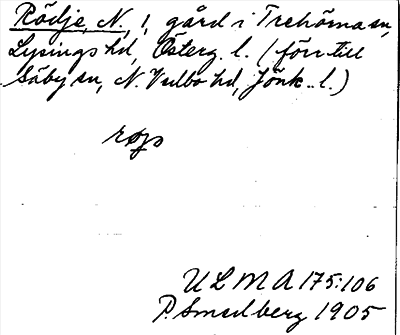 Rödje, N, 1, gård i Trehörna sn,
Lysings hd, Österg. l. (förr till
Säby sn, N. Vedbo hd, Jönk. l.)
ULMA 175:106
P. Smedberg 1905